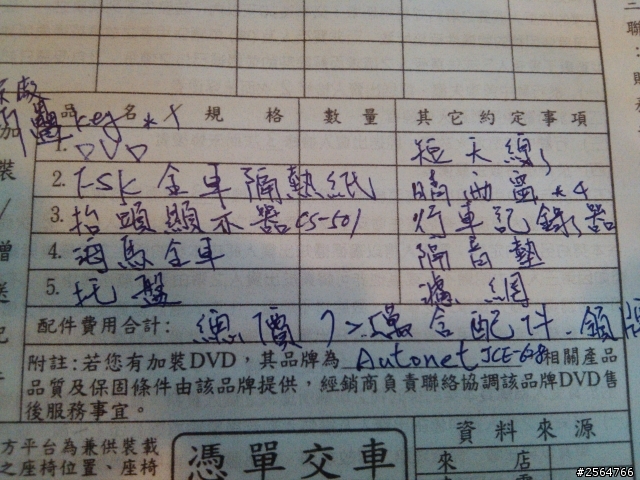 品 名 規 格 數量 其它約定事項
key*1
1. DVD 短天線
2. FSK全車隔熱紙 晴雨窗*4
3. 抬頭顯示器 CS-501 行車記錄器
4. 海馬全車 隔音墊
5. 托盤 濾網
配件費用合計: 總價 含配件.領牌
附註:若您有加裝DVD,其品牌為 Autonet JCE-628相關產品
品質及保固條件由該品牌提供,經銷商負責聯絡協調該品牌DVD售
後服務事宜。
加
裝
/
增
送
配
件
方平台為兼供裝載
之座椅位置、座椅
憑單交車
資料來源
來 店
#2564766